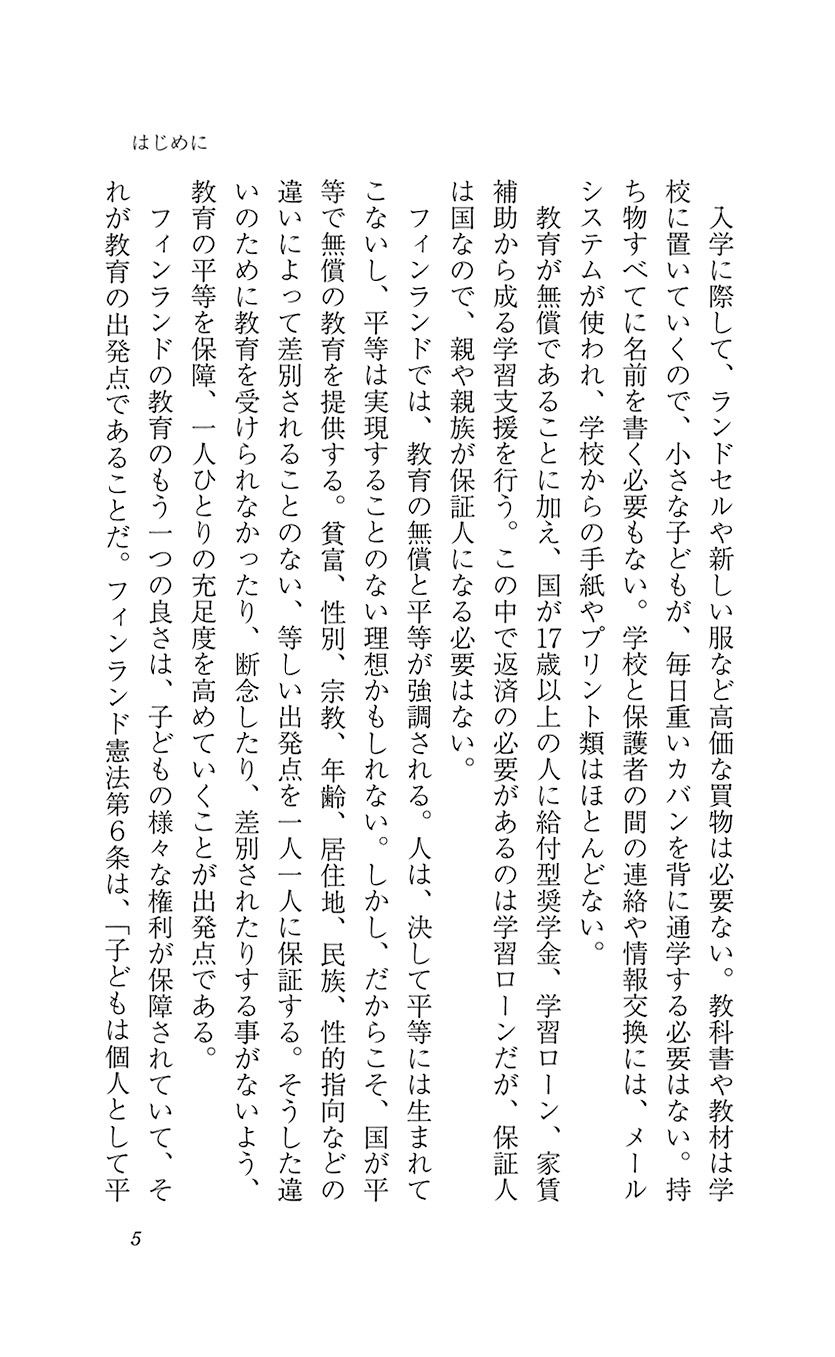 はじめに
入学に際して、ランドセルや新しい服など高価な買物は必要ない。教科書や教材は学
校に置いていくので、小さな子どもが、毎日重いカバンを背に通学する必要はない。持
ち物すべてに名前を書く必要もない。学校と保護者の間の連絡や情報交換には、メール
システムが使われ、学校からの手紙やプリント類はほとんどない。
教育が無償であることに加え、国が17歳以上の人に給付型奨学金、学習ローン、家賃
補助から成る学習支援を行う。この中で返済の必要があるのは学習ローンだが、保証人
は国なので、親や親族が保証人になる必要はない。
フィンランドでは、教育の無償と平等が強調される。人は、決して平等には生まれて
こないし、平等は実現することのない理想かもしれない。しかし、だからこそ、国が平
等で無償の教育を提供する。貧富、性別、宗教、年齢、居住地、民族、性的指向などの
違いによって差別されることのない、等しい出発点を一人一人に保証する。そうした違
いのために教育を受けられなかったり、断念したり、差別されたりする事がないよう、
教育の平等を保障、一人ひとりの充足度を高めていくことが出発点である。
フィンランドの教育のもう一つの良さは、子どもの様々な権利が保障されていて、そ
れが教育の出発点であることだ。フィンランド憲法第6条は、「子どもは個人として平
5